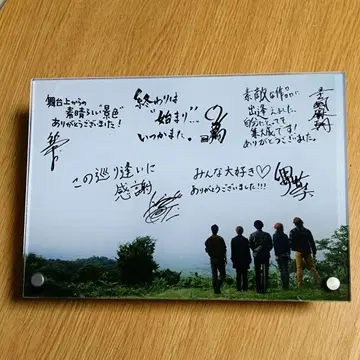 舞台上からの
素晴らしい"景色"
ありがとうございました!
終わりは
"始まり"!!
いつかまた。
素敵な作品に
出逢えました。
自分にとっても
集大成です!
ありがとうございました。
この巡り逢いに
感謝
みんな大好き♡
ありがとうございました!!!